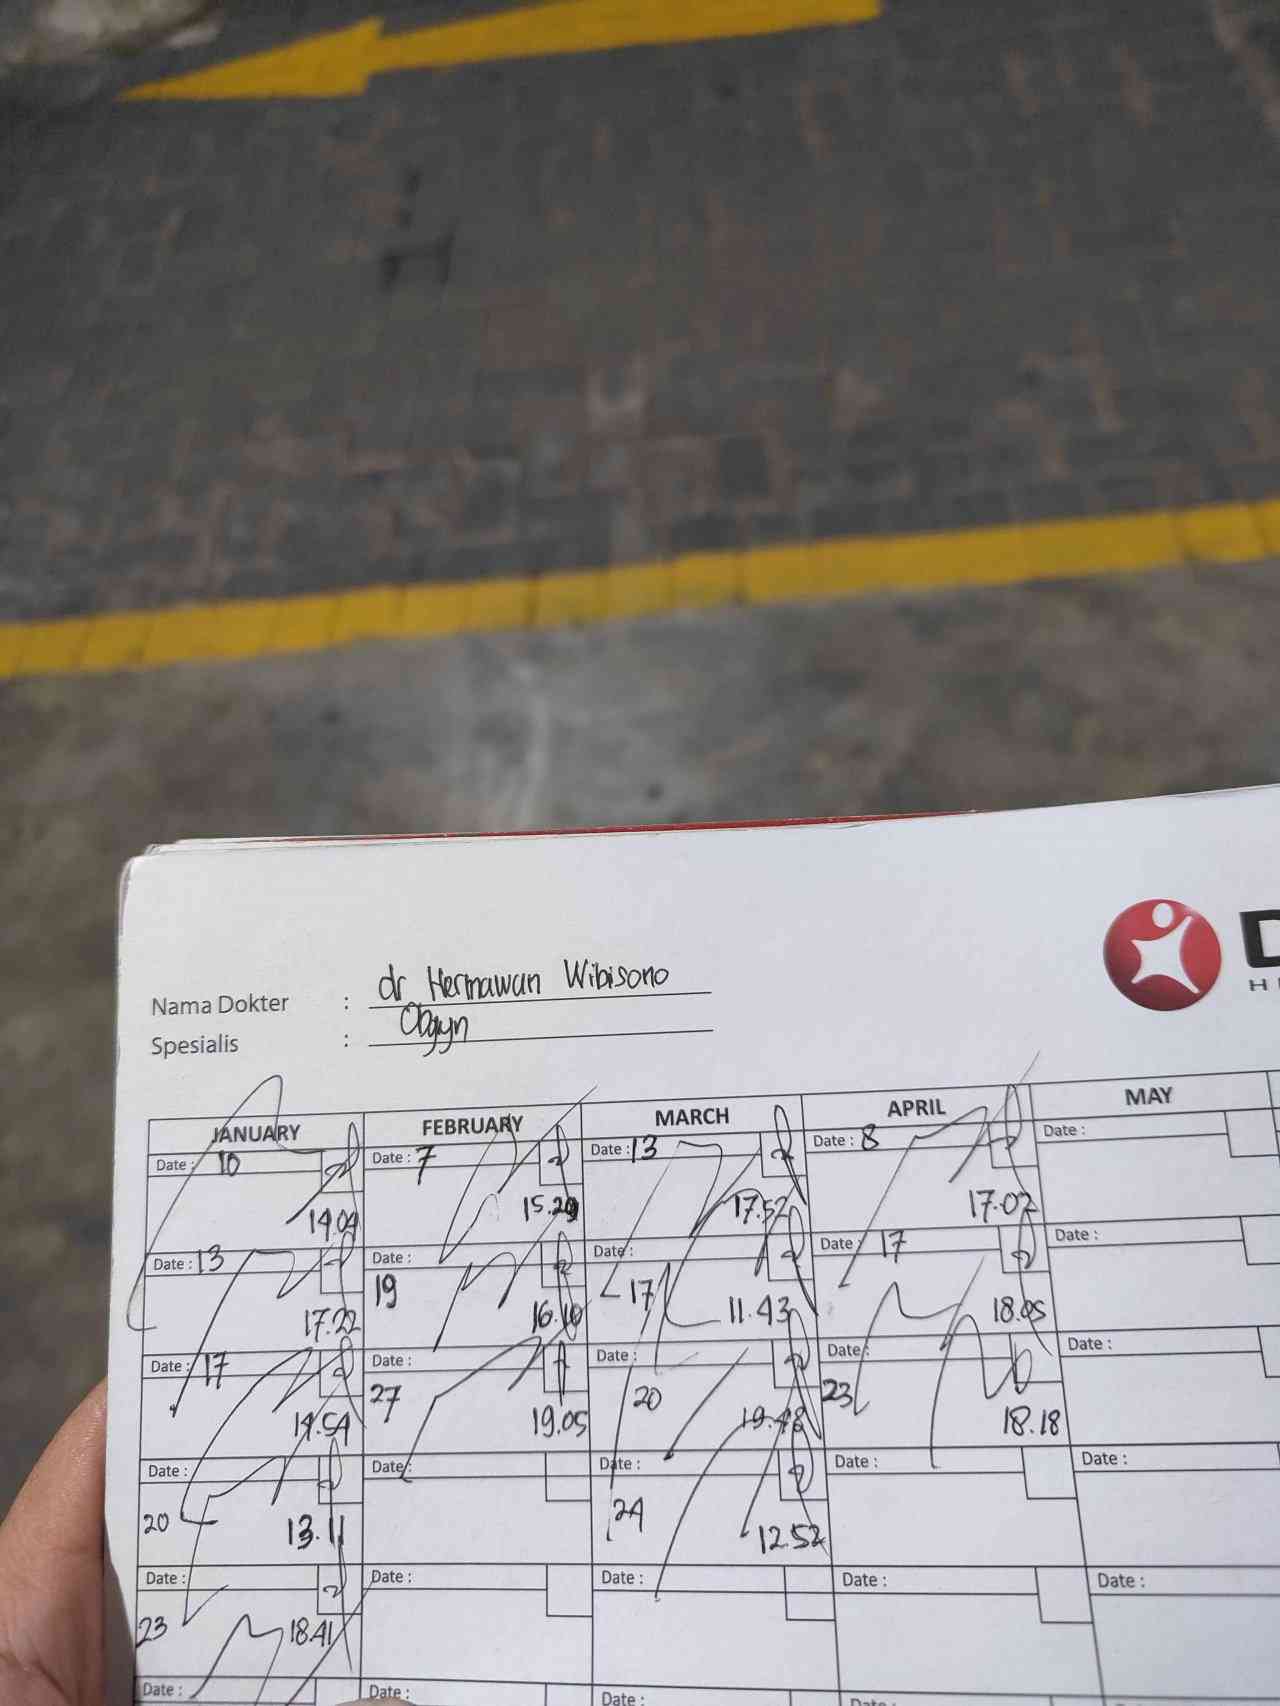 D
H
Nama Dokter : dr Hermawan Wibisono
Spesialis : Obgyn
JANUARY FEBRUARY MARCH APRIL MAY
Date : 10 Date : 7 Date : 13 Date : 8 Date :
14.04 15.29 17.52 17.02
Date : 13 Date : Date : Date : 17 Date :
19 17
17.22 16.10 11.43 18.05
Date : 17 Date : Date : Date : Date :
27 20 23
14.54 19.05 19.48 18.18
Date : Date : Date : Date : Date :
20 24
13.11 12.52
Date : Date : Date : Date : Date :
23
18.41
Date : Date : Date : Date :